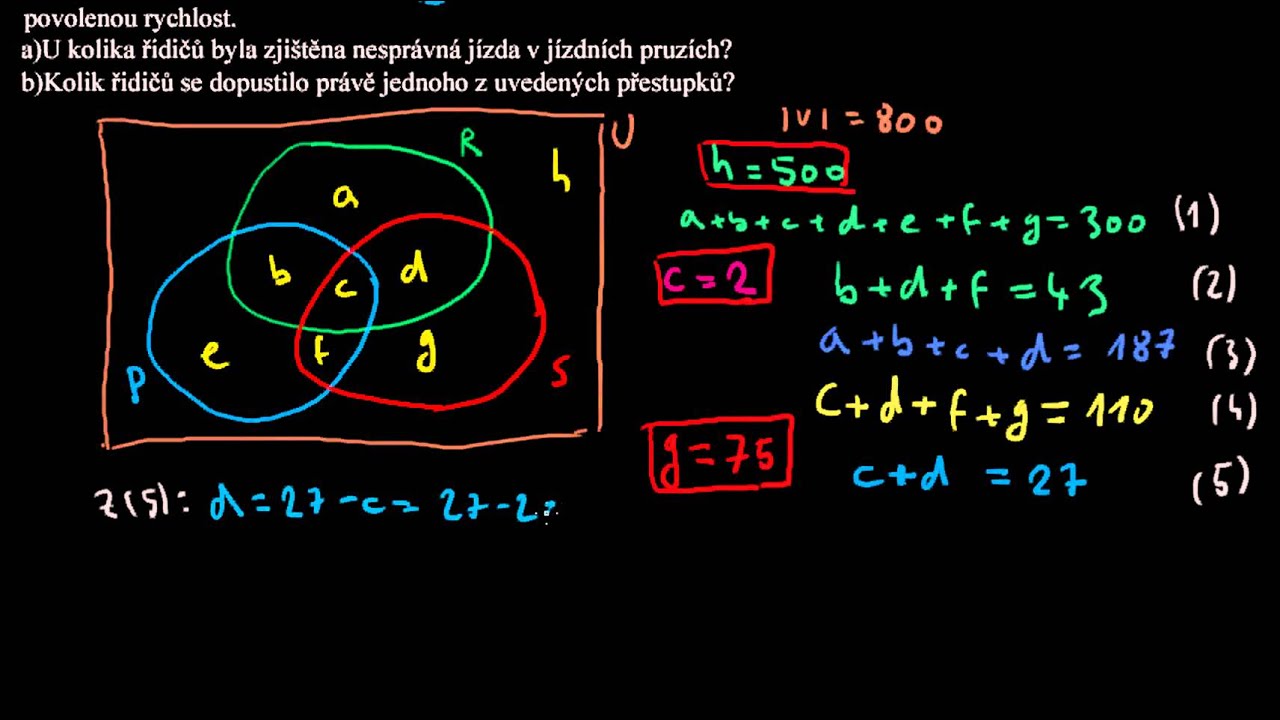 povolenou rychlost.
a)U kolika řídičů byla zjištěna nesprávná jízda v jízdních pruzích?
b)Kolik řidičů se dopustilo právě jednoho z uvedených přestupků?
|U| = 800
U
R
h
h = 500
a
a+b+c+d+e+f+g=300 (1)
b
c
d
c = 2
b+d+f = 43 (2)
e
f
g
a+b+c+d = 187 (3)
P
S
c+d+f+g = 110 (4)
g = 75
c+d = 27 (5)
z(5): d = 27 - c = 27 - 2 =